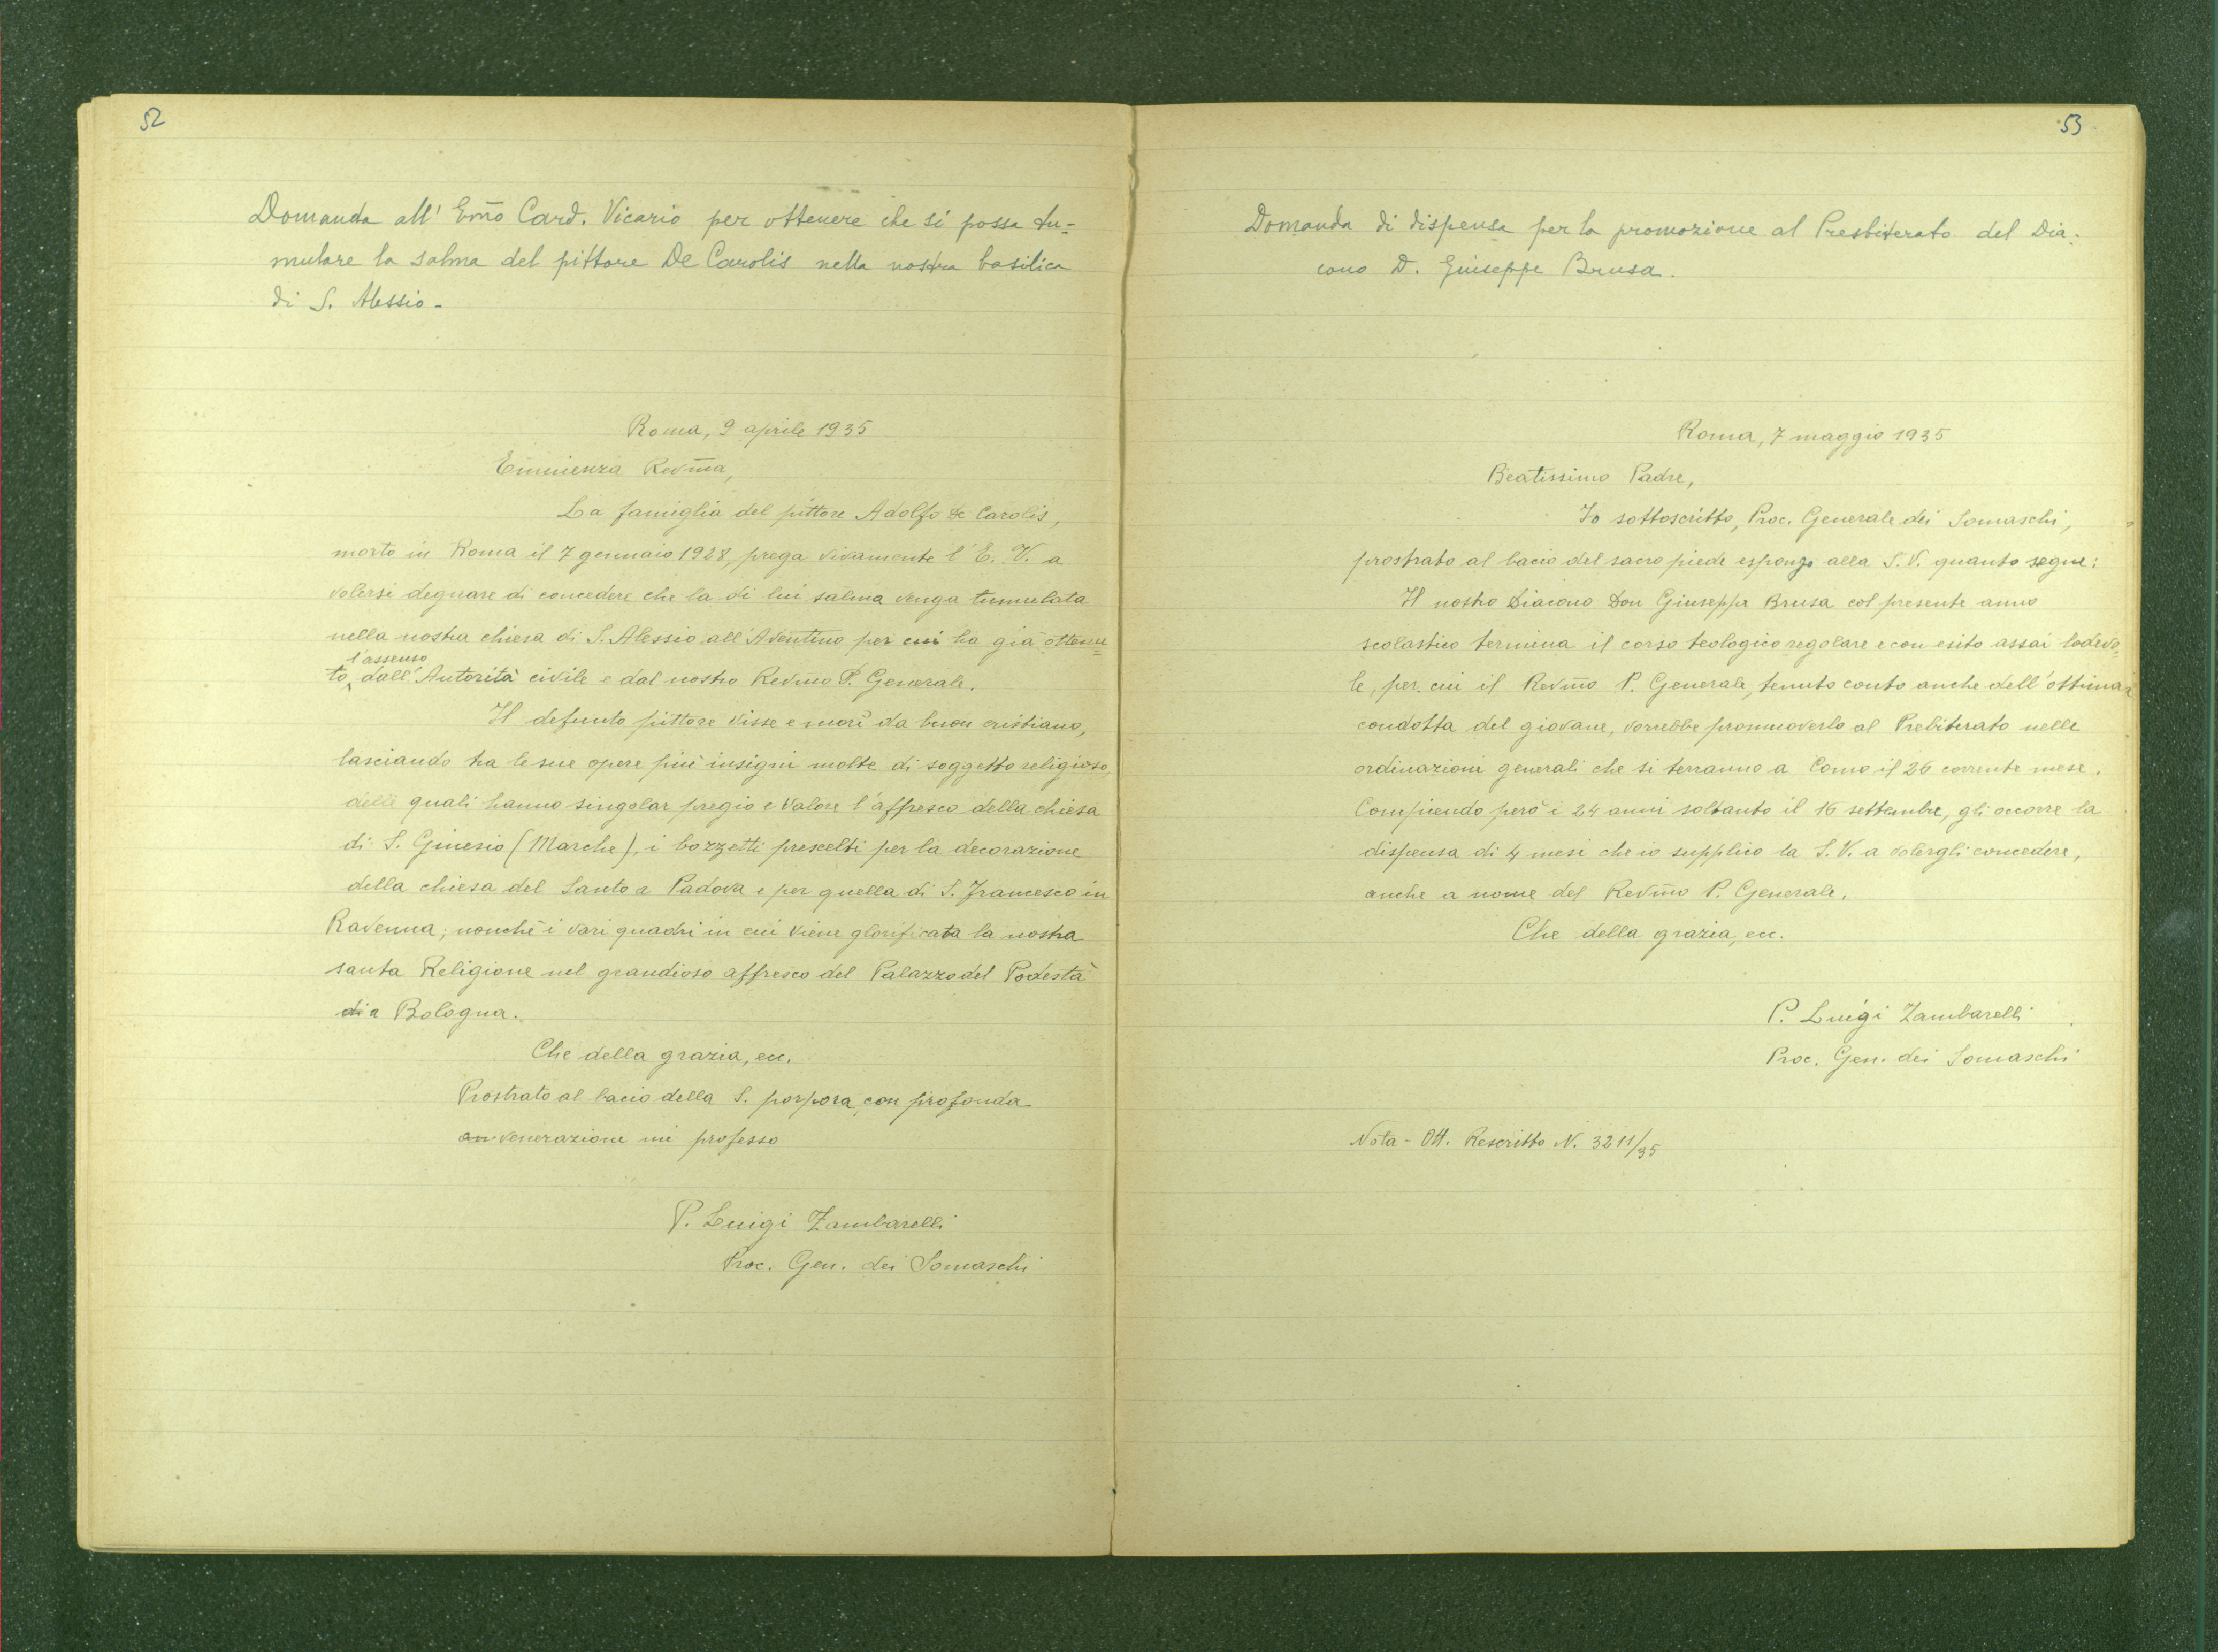 52
Domanda all' Em̃o Card. Vicario per ottenere che si possa tu=
mulare la salma del pittore De Carolis nella nostra basilica
di S. Alessio -
Roma, 9 aprile 1935
Eminenza Revm̃a,
La famiglia del pittore Adolfo de Carolis,
morto in Roma il 7 gennaio 1928, prega vivamente l'E. V. a
volersi degnare di concedere che la di lui salma venga tumulata
nella nostra chiesa di S. Alessio all'Aventino per cui ha già ottenu=
l'assenso
to dall'Autorità civile e dal nostro Revmo P. Generale.
Il defunto pittore visse e morì da buon cristiano,
lasciando tra le sue opere più insigni molte di soggetto religioso
delle quali hanno singolar pregio e valore l'affresco della chiesa
di S. Ginesio (Marche), i bozzetti prescelti per la decorazione
della chiesa del Santo a Padova e per quella di S. Francesco in
Ravenna; nonchè i vari quadri in cui viene glorificata la nostra
santa Religione nel grandioso affresco del Palazzo del Podestà
di a Bologna.
Che della grazia, ecc.
Prostrato al bacio della S. porpora con profonda
venerazione mi professo
P. Luigi Zambarelli
Proc. Gen. dei Somaschi
53
Domanda di dispensa per la promozione al Presbiterato del Dia=
cono D. Giuseppe Brusa.
Roma, 7 maggio 1935
Beatissimo Padre,
Io sottoscritto, Proc. Generale dei Somaschi,
prostrato al bacio del sacro piede espongo alla S. V. quanto segue:
Il nostro Diacono Don Giuseppe Brusa col presente anno
scolastico termina il corso teologico regolare e con esito assai lodevo=
le, per cui il Revm̃o P. Generale, tenuto conto anche dell'ottima
condotta del giovane, vorrebbe promuoverlo al Prebiterato nelle
ordinazioni generali che si terranno a Como il 26 corrente mese.
Compiendo però i 24 anni soltanto il 16 settembre, gli occorre la
dispensa di 4 mesi che io supplico la S. V. a volergli concedere,
anche a nome del Revm̃o P. Generale.
Che della grazia, ecc.
P. Luigi Zambarelli
Proc. Gen. dei Somaschi
Nota - Ott. Rescritto N. 3211/35